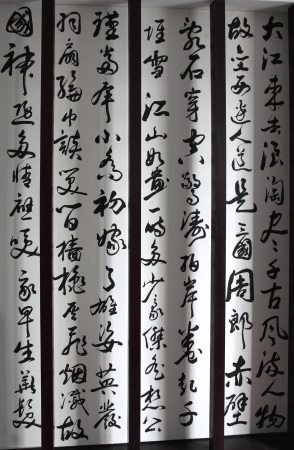 大江東去浪淘盡千古風流人物
故壘西邊人道是三國周郎赤壁
亂石穿空驚濤拍岸卷起千
堆雪江山如畫一時多少豪傑遙想公
瑾當年小喬初嫁了雄姿英發
羽扇綸巾談笑間檣櫓灰飛煙滅故
國神遊多情應笑我早生華髮